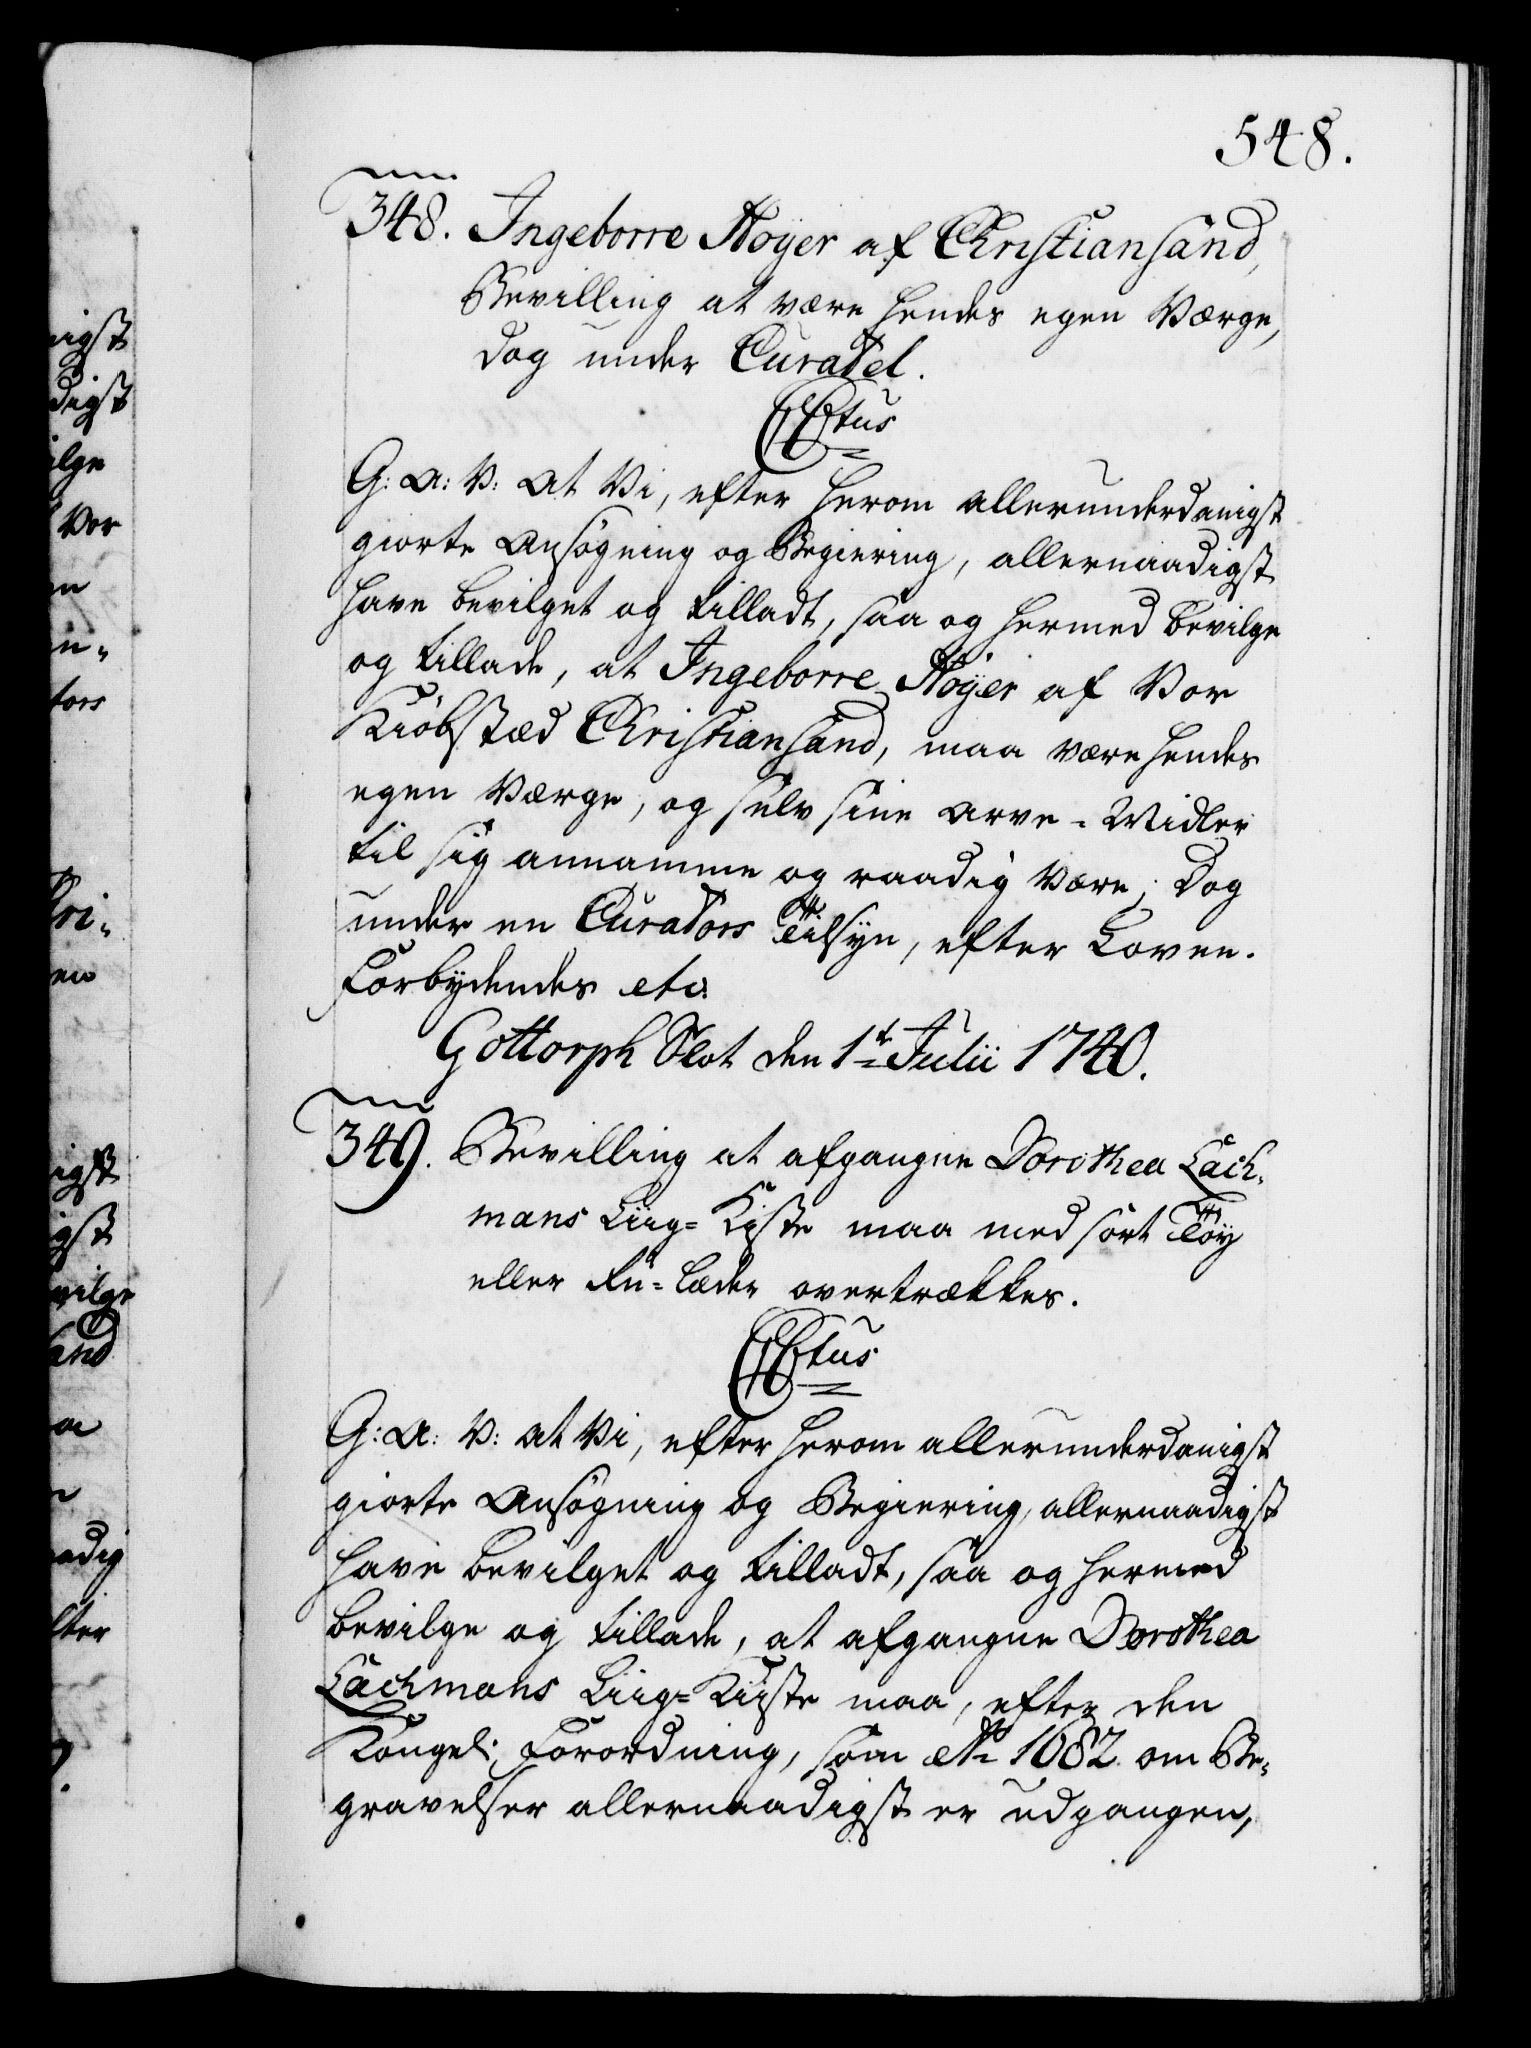 548.
348. Ingeborre Höyer af Christiansand,
Bevilling at være hendes egen Værge,
dog under Curatel.
C6tus
G: A: V: At Vi, efter herom allerunderdanigst
giorte Ansøgning og Begiering, allernaadigst
have bevilget og tilladt, saa og hermed bevilge
og tillade, at Ingeborre Höyer af Vor
Kiöbstæd Christiansand, maa være hendes
egen Værge, og selv sine Arve-Midler
til sig annamme og raadig være; Dog
under en Curators Tilsyn, efter Loven.
Forbydendes etc.
Gottorph Slot den 1te Julii 1740.
349. Bevilling at afgangne Dorothea Lach-
mans Liig-Kiste maa med sort Töy
eller Ru-læder overtrækkes.
C6tus
G: A: V: At Vi, efter herom allerunderdanigst
giorte Ansøgning og Begiering, allernaadigst
have bevilget og tilladt, saa og hermed
bevilge og tillade, at afgangne Dorothea
Lachmans Liig-Kiiste maa, efter den
Kongel: Forordning, som Ao 1682 om Be-
gravelser allernaadigst er udgangen,